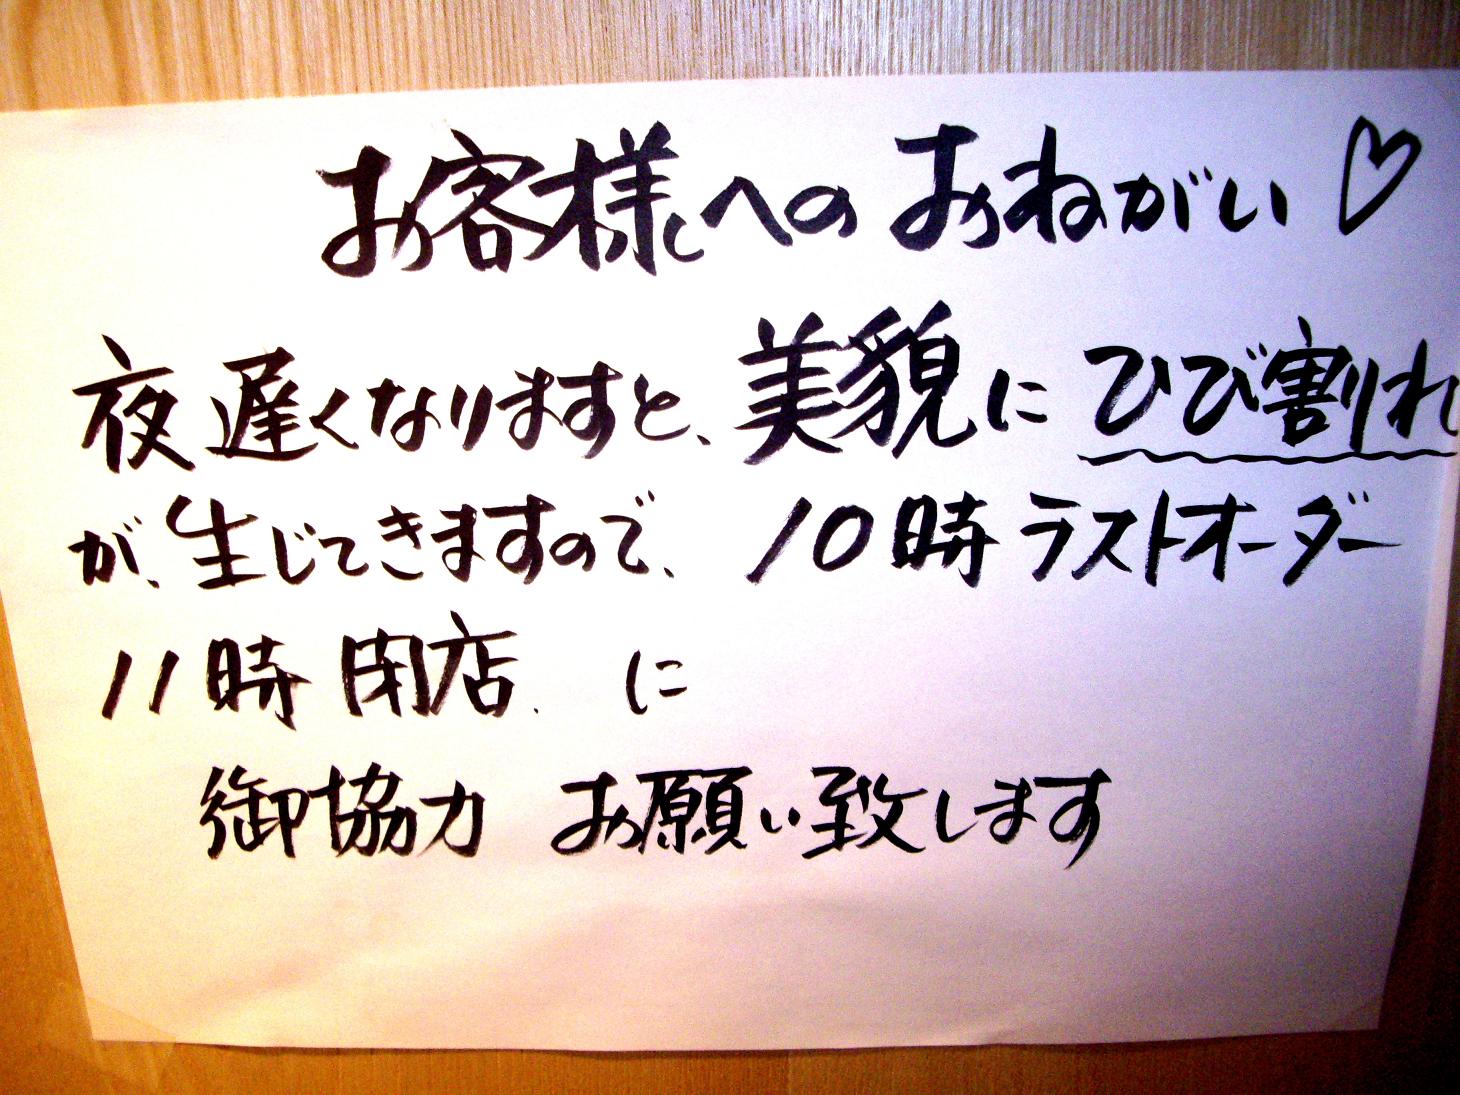 お客様へのおねがい♡
夜遅くなりますと、美貌にひび割れ
が、生じてきますので、10時ラストオーダー
11時閉店、に
御協力 お願い致します